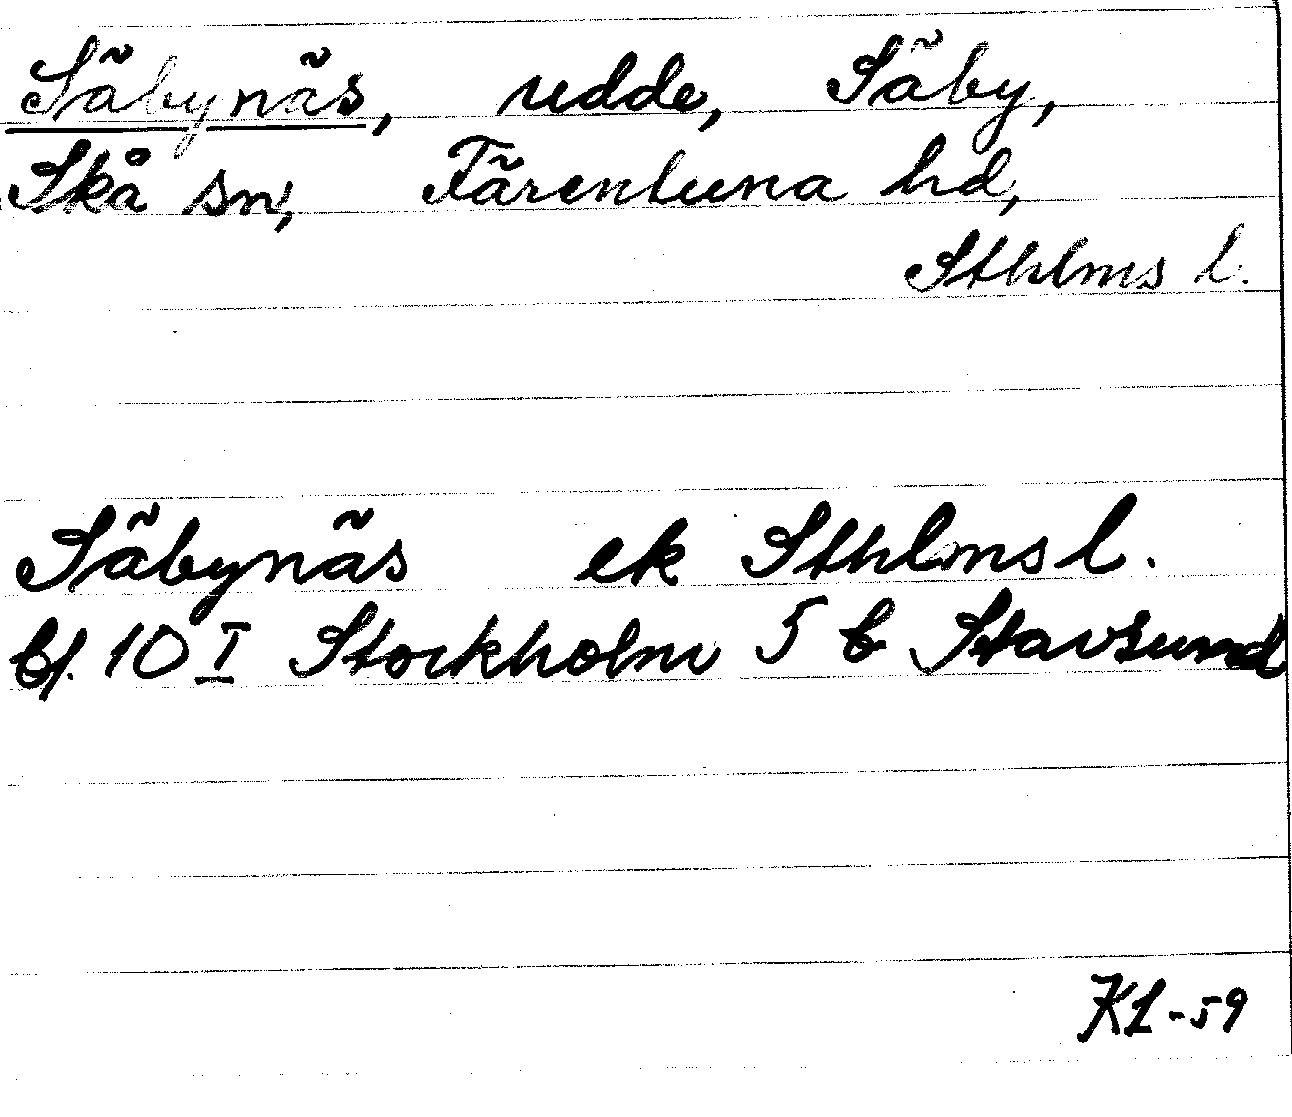 Säbynäs, udde, Säby,
Skå sn, Färentuna hd,
Sthlms l.
Säbynäs ek Sthlms l.
bl. 10 I Stockholm 5 b Stavsund
KL-59